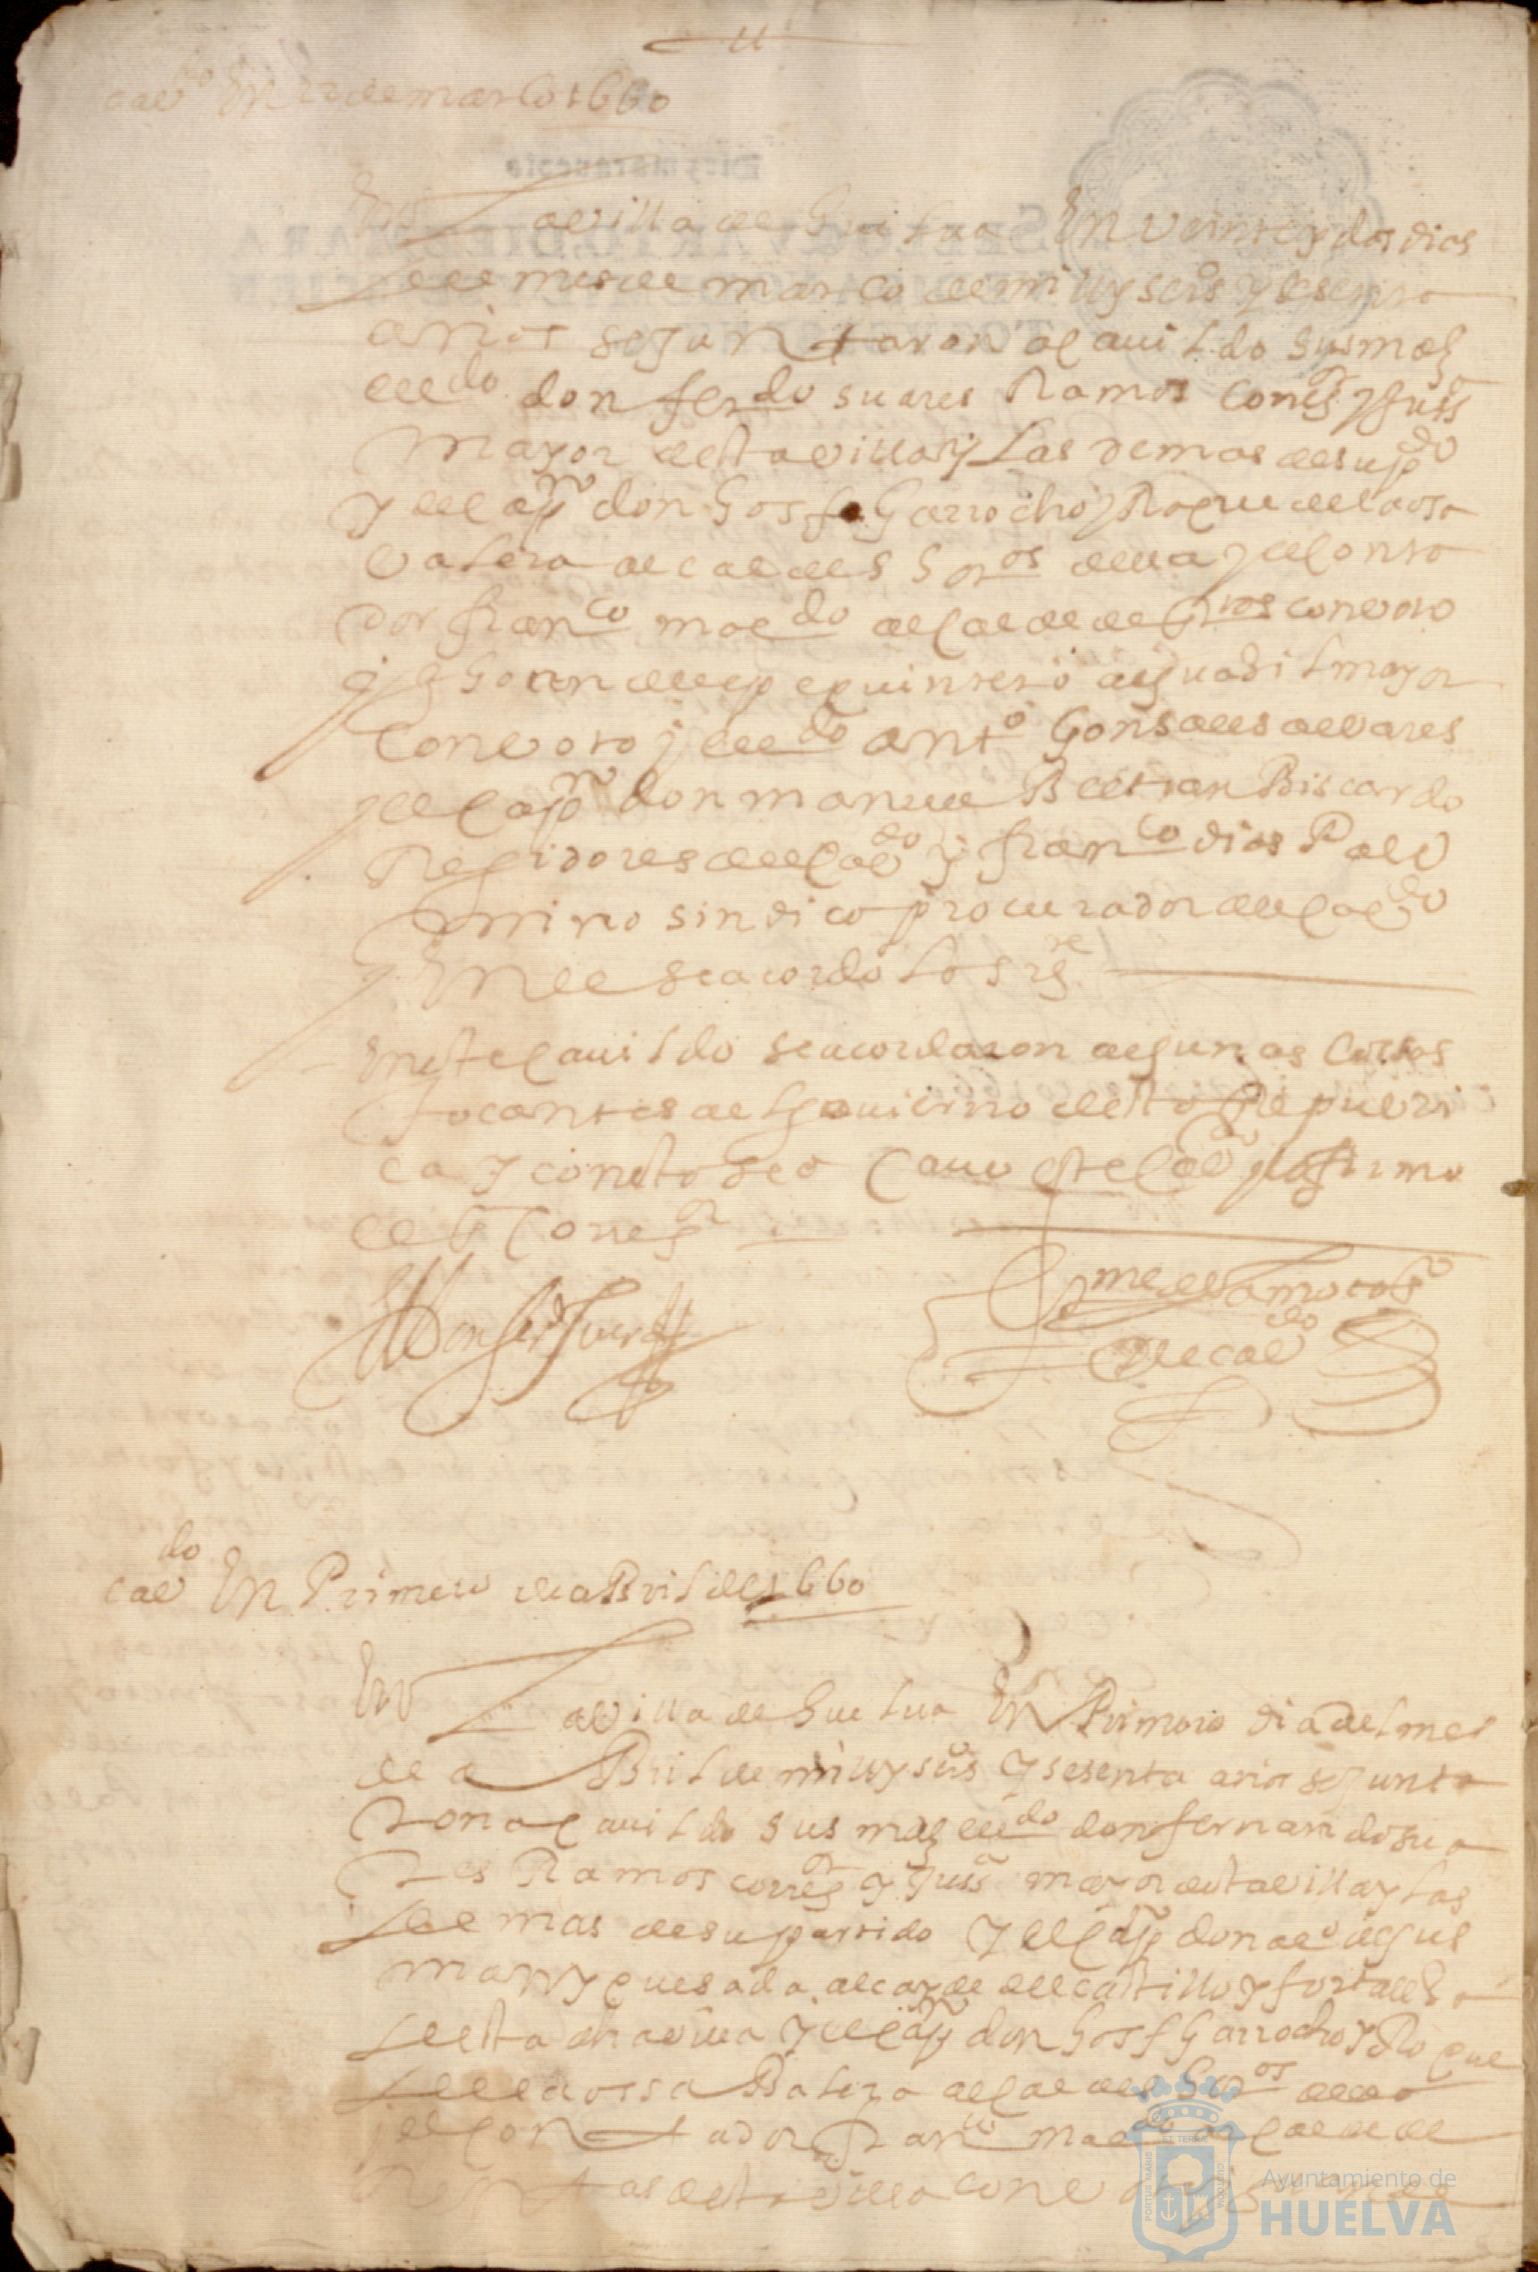 cavdo En 22 de março 1660
En La villa de Guelua En veinte y dos dias
del mes de março de mill y seis.o y sesenta
años se juntaron a cauildo sus mds
el ldo don ferdo suares Ramos corregr y Justa
mayor desta villa y Las demas de su pdo
y el capn don Josf Garrocho y Roque de la osa
Valera alcaldes hordos della y el conta
dor franco maldo alcalde de con voto
y Joan de quintero alguasil mayor
con voto y el ldo anto Gonsales alvares
y el capn don manuel Beltran Biscardo
Regidores del cavdo y franco dias Pala
mino sindico procurador del cavdo
y En el se acordo Lo sigte
En este cauildo se acordaron algunas cosas
tocantes al gouierno desta Republi
ca y con esto se a cauo este cavdo y lo firmo
el sr Corregr
Don ferdo Suares
del cavdo
cavdo En Primero de aBril de 1660
En La villa de Guelua En Primero dia del mes
de aBril de mill y seis.o y sesenta años se junta
ron a cauildo sus mds el ldo don fernando sua
res Ramos corregr y Justa mayor desta villa y Las
demas de su partido y el capn don alo de gus
man y quesada alcayde del castillo y fortalesa
desta dha villa y el capn don Josf Garrocho y Roque
de la ossa Balera alcaldes hordos della
y el contador franco maldo alcalde de
desta villa con voto y
Ayuntamiento de
HUELVA